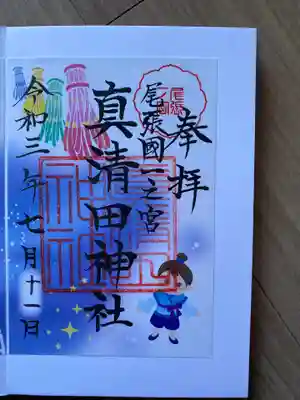 奉拝
尾張國一之宮
真清田神社
令和三年七月十一日